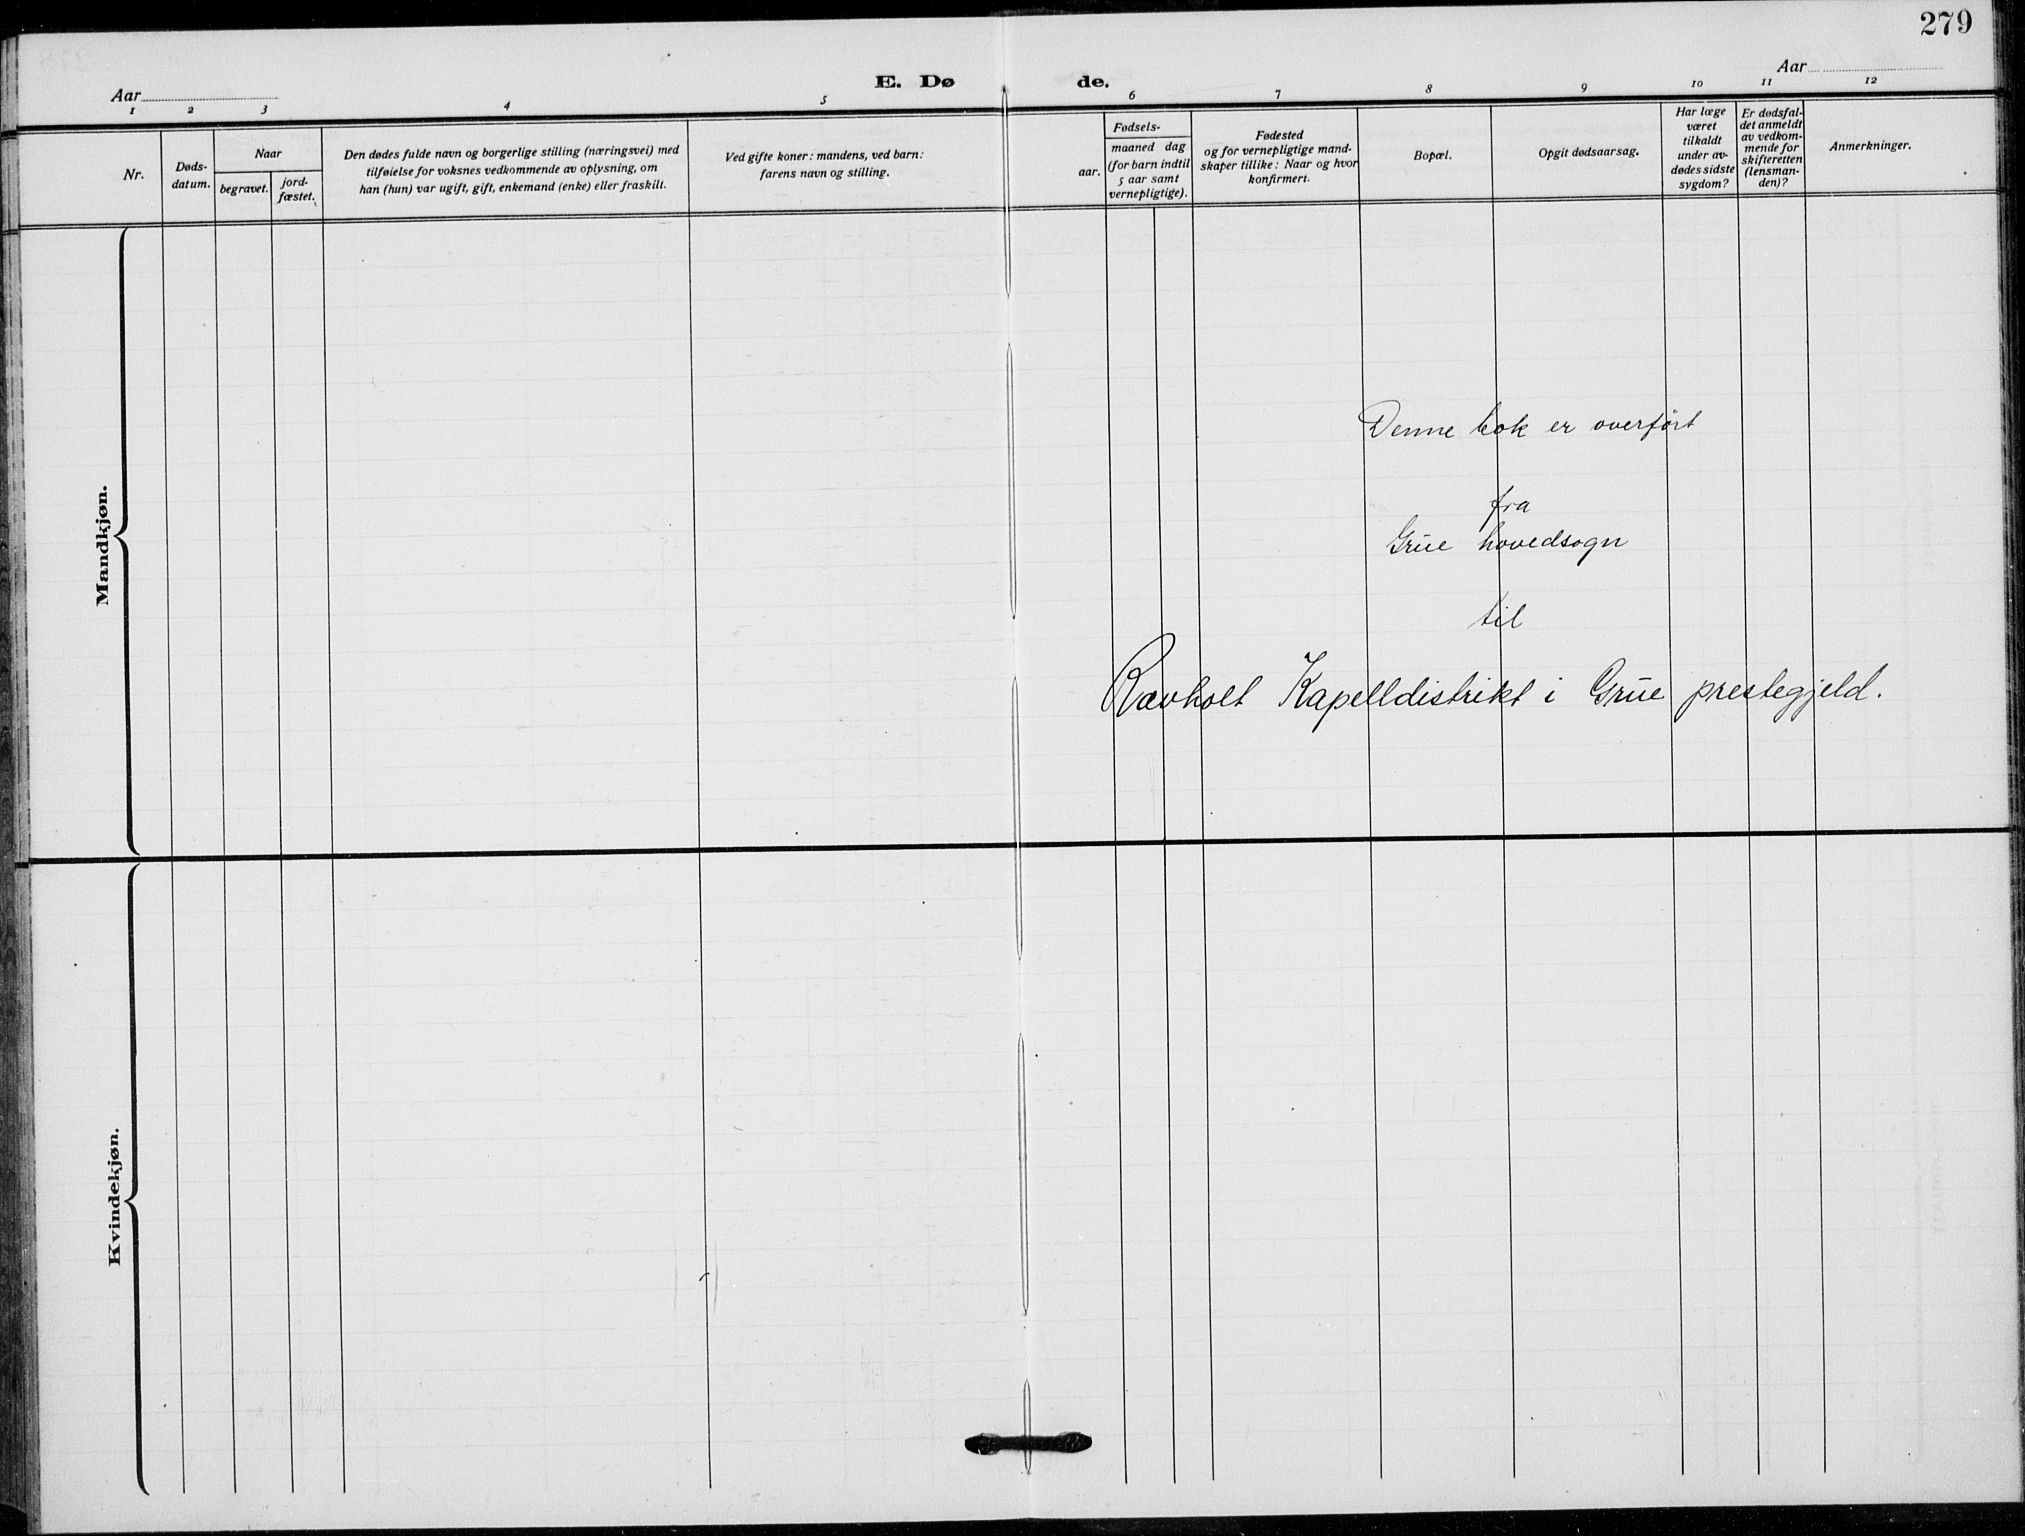 279
Aar
E. Dø de.
Aar
1 2 3 4 5 6 7 8 9 10 11 12
Nr.
Døds-
datum.
Naar
begravet.
jord-
fæstet.
Den dødes fulde navn og borgerlige stilling (næringsvei) med
tilføielse for voksnes vedkommende av oplysning, om
han (hun) var ugift, gift, enkemand (enke) eller fraskilt.
Ved gifte koner: mandens, ved barn:
farens navn og stilling.
Fødsels-
aar.
maaned dag
(for barn indtil
5 aar samt
vernepligtige).
Fødested
og for vernepligtige mand-
skaper tillike: Naar og hvor
konfirmert.
Bopæl.
Opgit dødsaarsag.
Har læge
været
tilkaldt
under av-
dødes sidste
sygdom?
Er dødsfal-
det anmeldt
av vedkom-
mende for
skifteretten
(lensman-
den)?
Anmerkninger.
Mandkjøn.
Denne bok er overført
fra
Grue hovedsogn
til
Rævholt Kapelldistrikt i Grue prestegjeld.
Kvindekjøn.